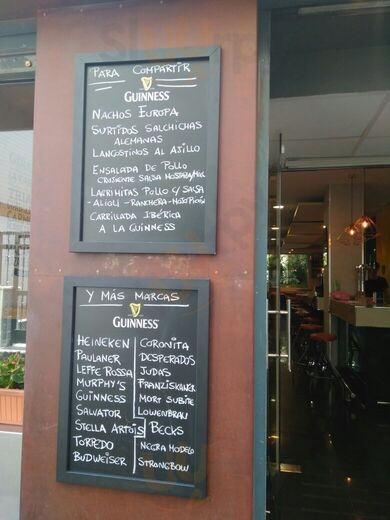 PARA COMPARTIR
GUINNESS
NACHOS EUROPA
SURTIDOS SALCHICHAS
ALEMANAS
LANGOSTINOS AL AJILLO
ENSALADA DE POLLO
CRUJIENTE SALSA MOSTAZA/MIEL
LAGRIMITAS POLLO C/ SALSA
-ALIOLI -RANCHERA -MOJO PICÓN
CARRILLADA IBÉRICA
A LA GUINNESS
Y MÁS MARCAS
GUINNESS
HEINEKEN
PAULANER
LEFFE ROSSA
MURPHY'S
GUINNESS
SALVATOR
STELLA ARTOIS
TORPEDO
BUDWEISER
CORONITA
DESPERADOS
JUDAS
FRANZISKANER
MORT SUBITE
LOWENBRAU
BECKS
NEGRA MODELO
STRONGBOW